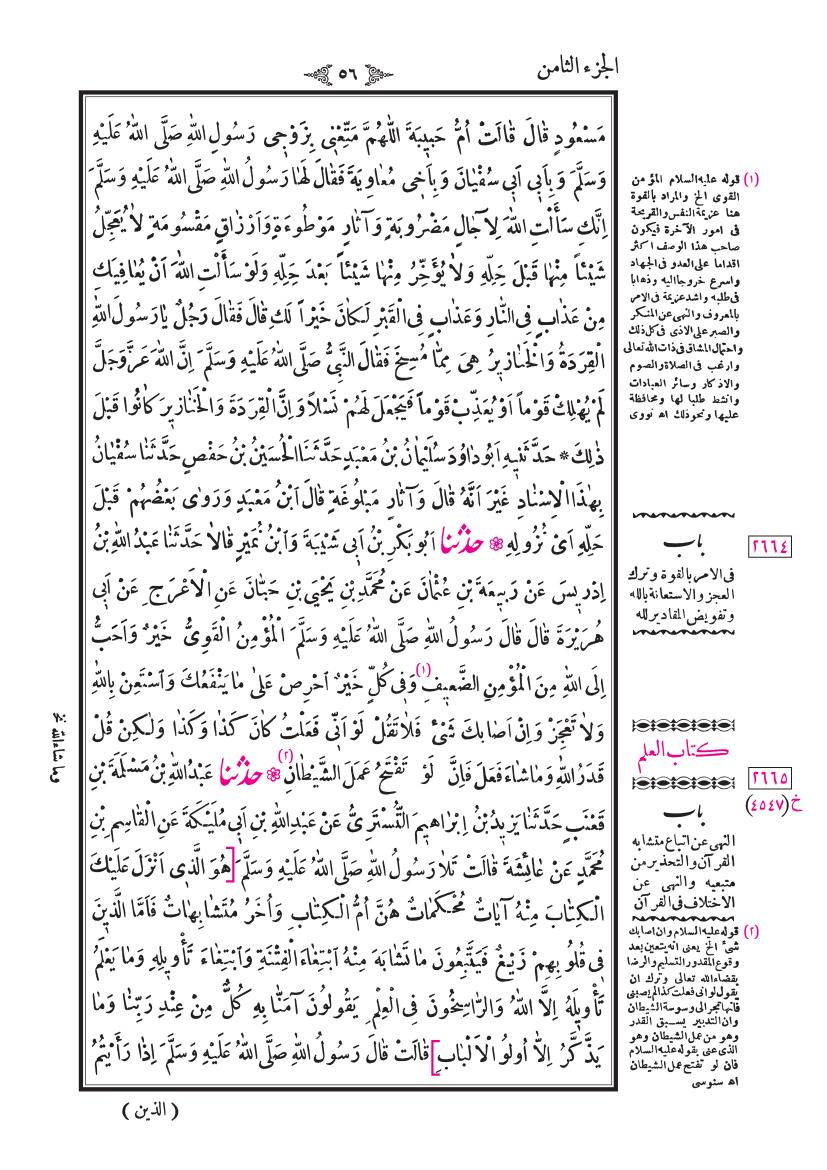 الجزء الثامن
٥٦
مَسْعُودٍ قَالَ قَالَتْ اُمُّ حَبِيبَةَ اللّٰهُمَّ مَتِّعْنِى بِزَوْجِى رَسُولِ اللّٰهِ صَلَّى اللّٰهُ عَلَيْهِ
وَسَلَّمَ وَبِاَبِى اَبِى سُفْيَانَ وَبِاَخِى مُعَاوِيَةَ فَقَالَ لَهَا رَسُولُ اللّٰهِ صَلَّى اللّٰهُ عَلَيْهِ وَسَلَّمَ
اِنَّكِ سَأَلْتِ اللّٰهَ لِآجَالٍ مَضْرُوبَةٍ وَآثَارٍ مَوْطُوءَةٍ وَاَرْزَاقٍ مَقْسُومَةٍ لَا يُعَجِّلُ
شَيْئاً مِنْهَا قَبْلَ حِلِّهِ وَلَا يُؤَخِّرُ مِنْهَا شَيْئاً بَعْدَ حِلِّهِ وَلَوْ سَأَلْتِ اللّٰهَ اَنْ يُعَافِيَكِ
مِنْ عَذَابٍ فِى النَّارِ وَعَذَابٍ فِى الْقَبْرِ لَكَانَ خَيْراً لَكِ قَالَ فَقَالَ رَجُلٌ يَا رَسُولَ اللّٰهِ
الْقِرَدَةُ وَالْخَنَازِيرُ هِىَ مِمَّا مُسِخَ فَقَالَ النَّبِىُّ صَلَّى اللّٰهُ عَلَيْهِ وَسَلَّمَ اِنَّ اللّٰهَ عَزَّ وَجَلَّ
لَمْ يُهْلِكْ قَوْماً اَوْ يُعَذِّبْ قَوْماً فَيَجْعَلَ لَهُمْ نَسْلاً وَاِنَّ الْقِرَدَةَ وَالْخَنَازِيرَ كَانُوا قَبْلَ
ذٰلِكَ * حَدَّثَنِيهِ اَبُو دَاوُدَ سُلَيْمَانُ بْنُ مَعْبَدٍ حَدَّثَنَا الْحُسَيْنُ بْنُ حَفْصٍ حَدَّثَنَا سُفْيَانُ
بِهٰذَا الْاِسْنَادِ غَيْرَ اَنَّهُ قَالَ وَآثَارٍ مَبْلُوغَةٍ قَالَ ابْنُ مَعْبَدٍ وَرَوَى بَعْضُهُمْ قَبْلَ
حِلِّهِ اَىْ نُزُولِهِ ۞ حَدَّثَنَا اَبُو بَكْرِ بْنُ اَبِى شَيْبَةَ وَابْنُ نُمَيْرٍ قَالَا حَدَّثَنَا عَبْدُ اللّٰهِ بْنُ
اِدْرِيسَ عَنْ رَبِيعَةَ بْنِ عُثْمَانَ عَنْ مُحَمَّدِ بْنِ يَحْيَى بْنِ حَبَّانَ عَنِ الْاَعْرَجِ عَنْ اَبِى
هُرَيْرَةَ قَالَ قَالَ رَسُولُ اللّٰهِ صَلَّى اللّٰهُ عَلَيْهِ وَسَلَّمَ الْمُؤْمِنُ الْقَوِىُّ خَيْرٌ وَاَحَبُّ
اِلَى اللّٰهِ مِنَ الْمُؤْمِنِ الضَّعِيفِ (١) وَفِى كُلٍّ خَيْرٌ اَحْرِصْ عَلَى مَا يَنْفَعُكَ وَاسْتَعِنْ بِاللّٰهِ
وَلَا تَعْجَزْ وَاِنْ اَصَابَكَ شَىْءٌ فَلَا تَقُلْ لَوْ اَنِّى فَعَلْتُ كَانَ كَذَا وَكَذَا وَلٰكِنْ قُلْ
قَدَرُ اللّٰهِ وَمَا شَاءَ فَعَلَ فَاِنَّ لَوْ تَفْتَحُ عَمَلَ الشَّيْطَانِ (٢) ۞ حَدَّثَنَا عَبْدُ اللّٰهِ بْنُ مَسْلَمَةَ بْنِ
قَعْنَبٍ حَدَّثَنَا يَزِيدُ بْنُ اِبْرَاهِيمَ التُّسْتَرِىُّ عَنْ عَبْدِ اللّٰهِ بْنِ اَبِى مُلَيْكَةَ عَنِ الْقَاسِمِ بْنِ
مُحَمَّدٍ عَنْ عَائِشَةَ قَالَتْ تَلَا رَسُولُ اللّٰهِ صَلَّى اللّٰهُ عَلَيْهِ وَسَلَّمَ [هُوَ الَّذِى اَنْزَلَ عَلَيْكَ
الْكِتَابَ مِنْهُ آيَاتٌ مُحْكَمَاتٌ هُنَّ اُمُّ الْكِتَابِ وَاُخَرُ مُتَشَابِهَاتٌ فَاَمَّا الَّذِينَ
فِى قُلُوبِهِمْ زَيْغٌ فَيَتَّبِعُونَ مَا تَشَابَهَ مِنْهُ ابْتِغَاءَ الْفِتْنَةِ وَابْتِغَاءَ تَأْوِيلِهِ وَمَا يَعْلَمُ
تَأْوِيلَهُ اِلَّا اللّٰهُ وَالرَّاسِخُونَ فِى الْعِلْمِ يَقُولُونَ آمَنَّا بِهِ كُلٌّ مِنْ عِنْدِ رَبِّنَا وَمَا
يَذَّكَّرُ اِلَّا اُولُو الْاَلْبَابِ] قَالَتْ قَالَ رَسُولُ اللّٰهِ صَلَّى اللّٰهُ عَلَيْهِ وَسَلَّمَ اِذَا رَأَيْتُمُ
( الذين )
(١) قوله عليه السلام المؤمن
القوى الخ والمراد بالقوة
هنا عزيمة النفس والقريحة
فى امور الآخرة فيكون
صاحب هذا الوصف اكثر
اقداما على العدو فى الجهاد
واسرع خروجا اليه وذهابا
فى طلبه واشد عزيمة فى الامر
بالمعروف والنهى عن المنكر
والصبر على الاذى فى كل ذلك
واحتمال المشاق فى ذات الله تعالى
وارغب فى الصلاة والصوم
والاذكار وسائر العبادات
وانشط طلبا لها ومحافظة
عليها ونحو ذلك اه نووى
باب
٢٦٦٤
فى الامر بالقوة وترك
العجز والاستعانة بالله
وتفويض المقادير لله
كتاب العلم
٢٦٦٥
خ (٤٥٤٧)
باب
النهى عن اتباع متشابه
القرآن والتحذير من
متبعيه والنهى عن
الاختلاف فى القرآن
(٢) قوله عليه السلام وان اصابك
شئ الخ يعنى انه يتعين بعد
وقوع المقدور التسليم والرضا
بقضاء الله تعالى وترك ان
يقول لو انى فعلت كذا لم يصبنى
فانها تجر الى وسوسة الشيطان
وان التدبير يسبق القدر
وهو من عمل الشيطان وهو
الذى عنى بقوله عليه السلام
فان لو تفتح عمل الشيطان
اه سنوسى
وما شاء الله نخ